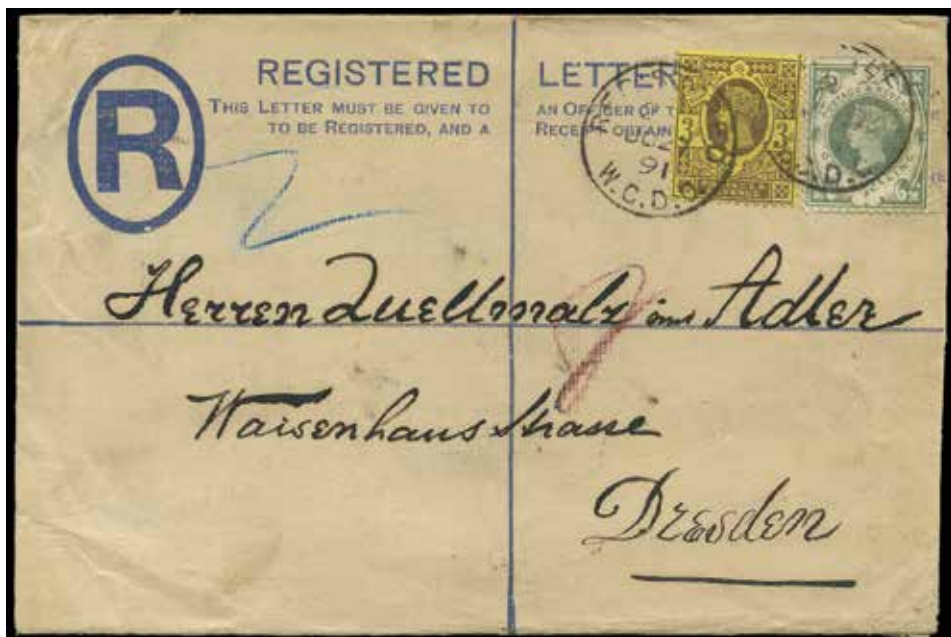 R
REGISTERED LETTER
THIS LETTER MUST BE GIVEN TO AN OFFICER OF
TO BE REGISTERED, AND A RECEIPT OBTAIN
3 3
91
W.C.D.O
.D.
2
Herren Quellmalz und Adler
Waisenhaus Strasse
Dresden